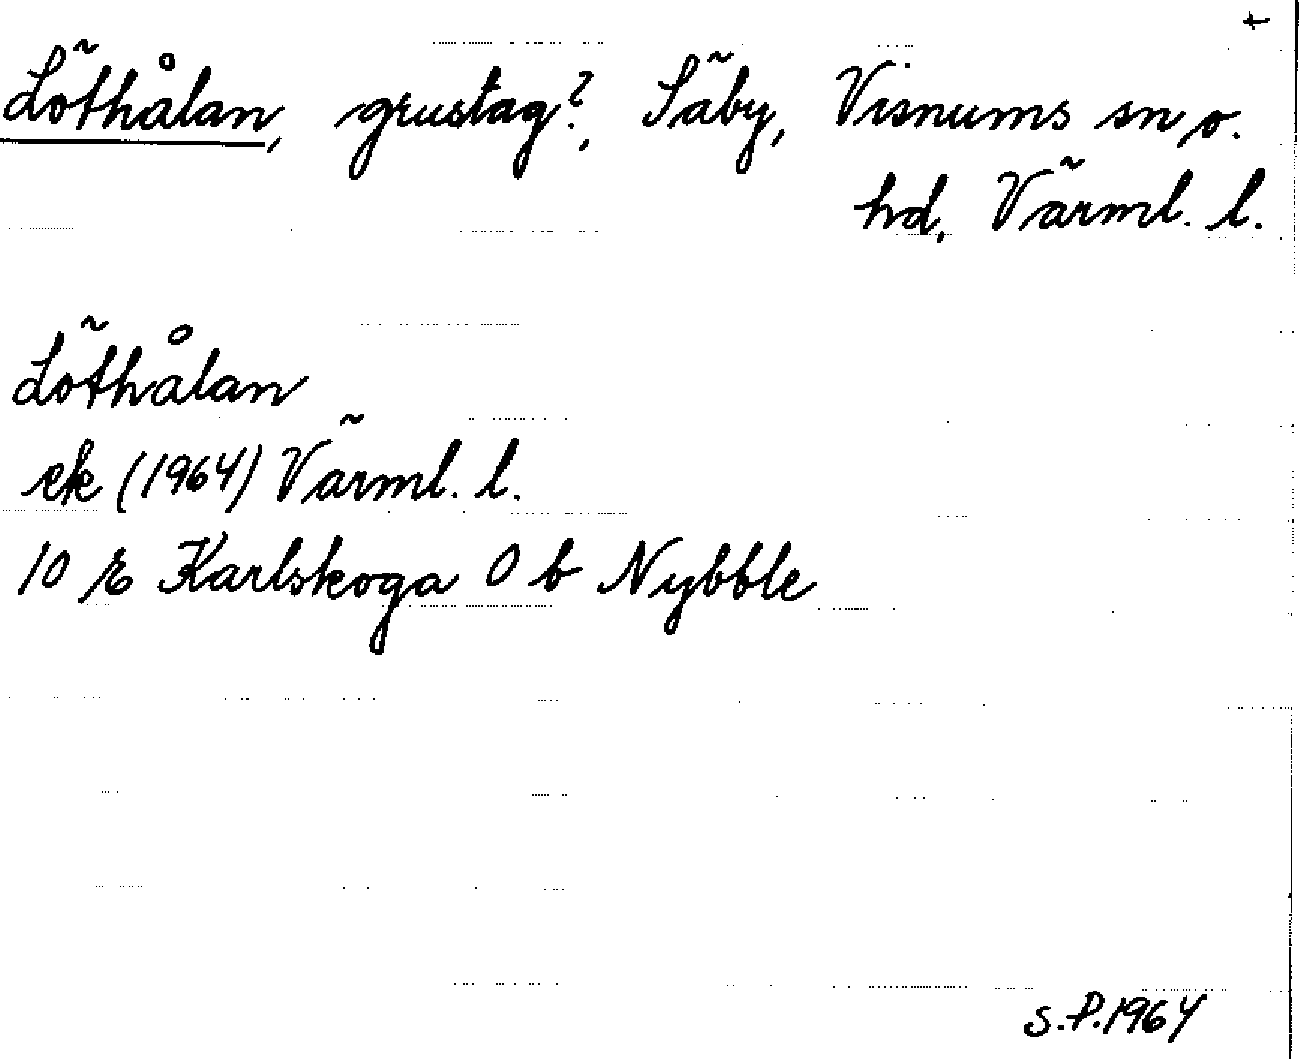 +
Löthålan, grustag?, Säby, Visnums sn o.
hd, Värml. l.
Löthålan
ek (1964) Värml. l.
10 E Karlskoga 0 b Nybble
S.P.1964